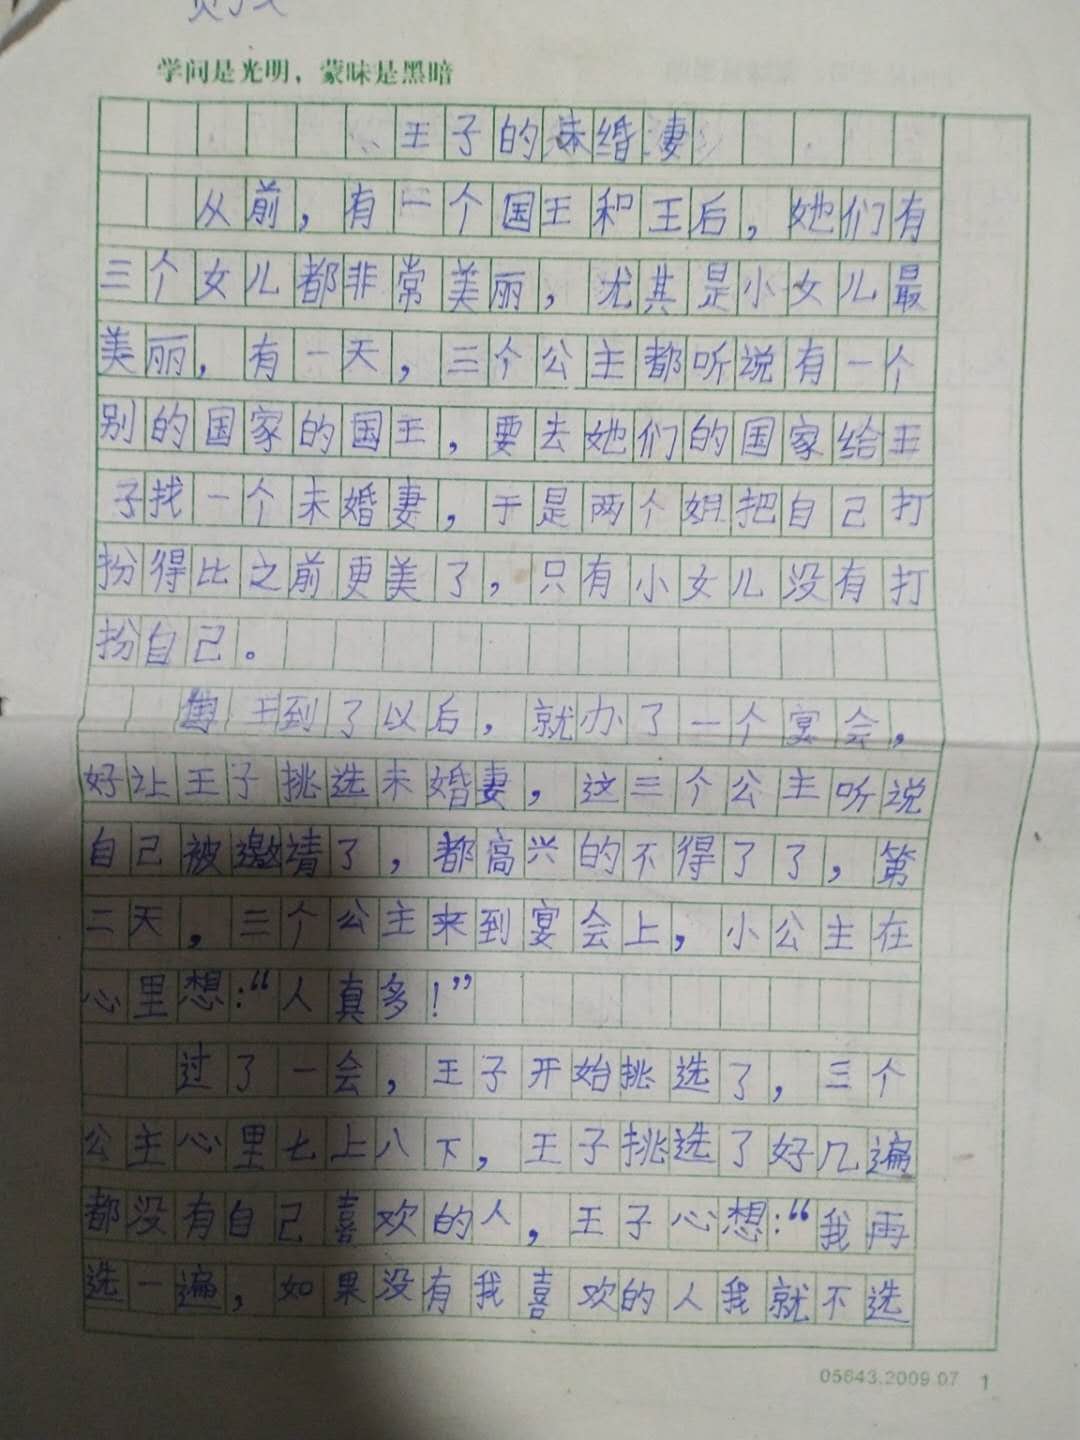 学问是光明，蒙昧是黑暗
王子的未婚妻
从前，有一个国王和王后，她们有
三个女儿都非常美丽，尤其是小女儿最
美丽，有一天，三个公主都听说有一个
别的国家的国王，要去她们的国家给王
子找一个未婚妻，于是两个姐把自己打
扮得比之前更美了，只有小女儿没有打
扮自己。
国王到了以后，就办了一个宴会，
好让王子挑选未婚妻，这三个公主听说
自己被邀请了，都高兴的不得了了，第
二天，三个公主来到宴会上，小公主在
心里想：“人真多！”
过了一会，王子开始挑选了，三个
公主心里七上八下，王子挑选了好几遍
都没有自己喜欢的人，王子心想：“我再
选一遍，如果没有我喜欢的人我就不选
05643.2009.07 1